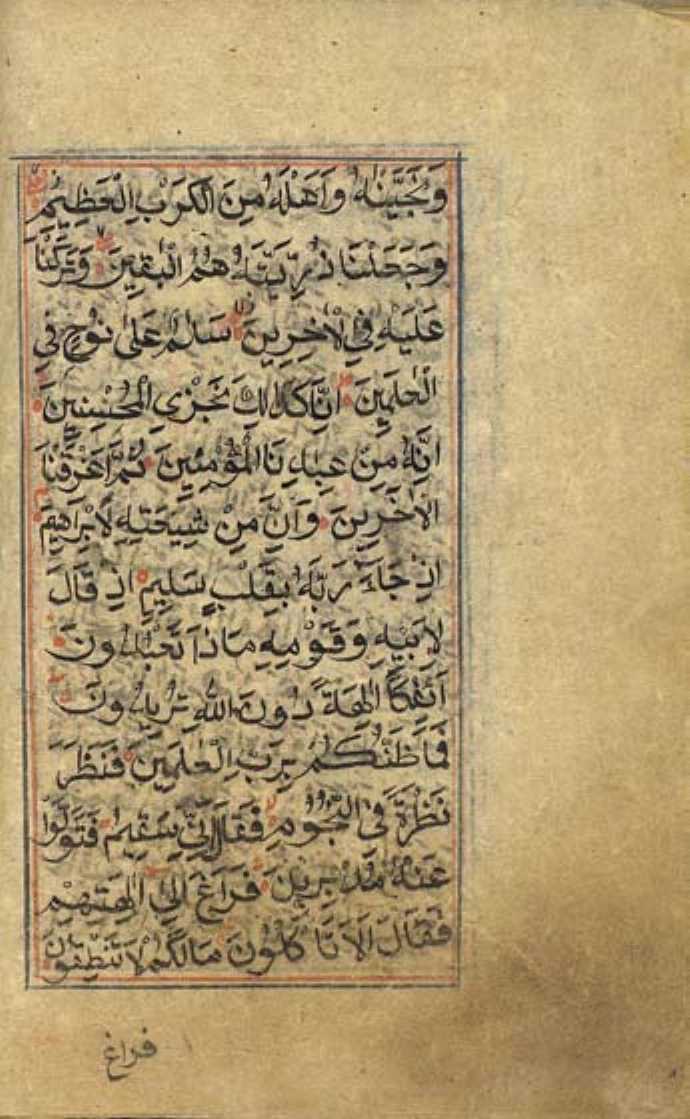 وَنَجَّيْنٰهُ وَاَهْلَهُ مِنَ الْكَرْبِ الْعَظِيْمِ
وَجَعَلْنَا ذُرِّيَّتَهُ هُمُ الْبٰقِيْنَ وَتَرَكْنَا
عَلَيْهِ فِي الْاٰخِرِيْنَ سَلٰمٌ عَلٰى نُوْحٍ فِي
الْعٰلَمِيْنَ اِنَّا كَذٰلِكَ نَجْزِي الْمُحْسِنِيْنَ
اِنَّهُ مِنْ عِبَادِنَا الْمُؤْمِنِيْنَ ثُمَّ اَغْرَقْنَا
الْاٰخَرِيْنَ وَاِنَّ مِنْ شِيْعَتِهٖ لَاِبْرَاهِيْمَ
اِذْ جَاءَ رَبَّهُ بِقَلْبٍ سَلِيْمٍ اِذْ قَالَ
لِاَبِيْهِ وَقَوْمِهٖ مَاذَا تَعْبُدُوْنَ
اَئِفْكًا اٰلِهَةً دُوْنَ اللّٰهِ تُرِيْدُوْنَ
فَمَا ظَنُّكُمْ بِرَبِّ الْعٰلَمِيْنَ فَنَظَرَ
نَظْرَةً فِي النُّجُوْمِ فَقَالَ اِنِّيْ سَقِيْمٌ فَتَوَلَّوْا
عَنْهُ مُدْبِرِيْنَ فَرَاغَ اِلٰى اٰلِهَتِهِمْ
فَقَالَ اَلَا تَاْكُلُوْنَ مَالَكُمْ لَا تَنْطِقُوْنَ
فراغ